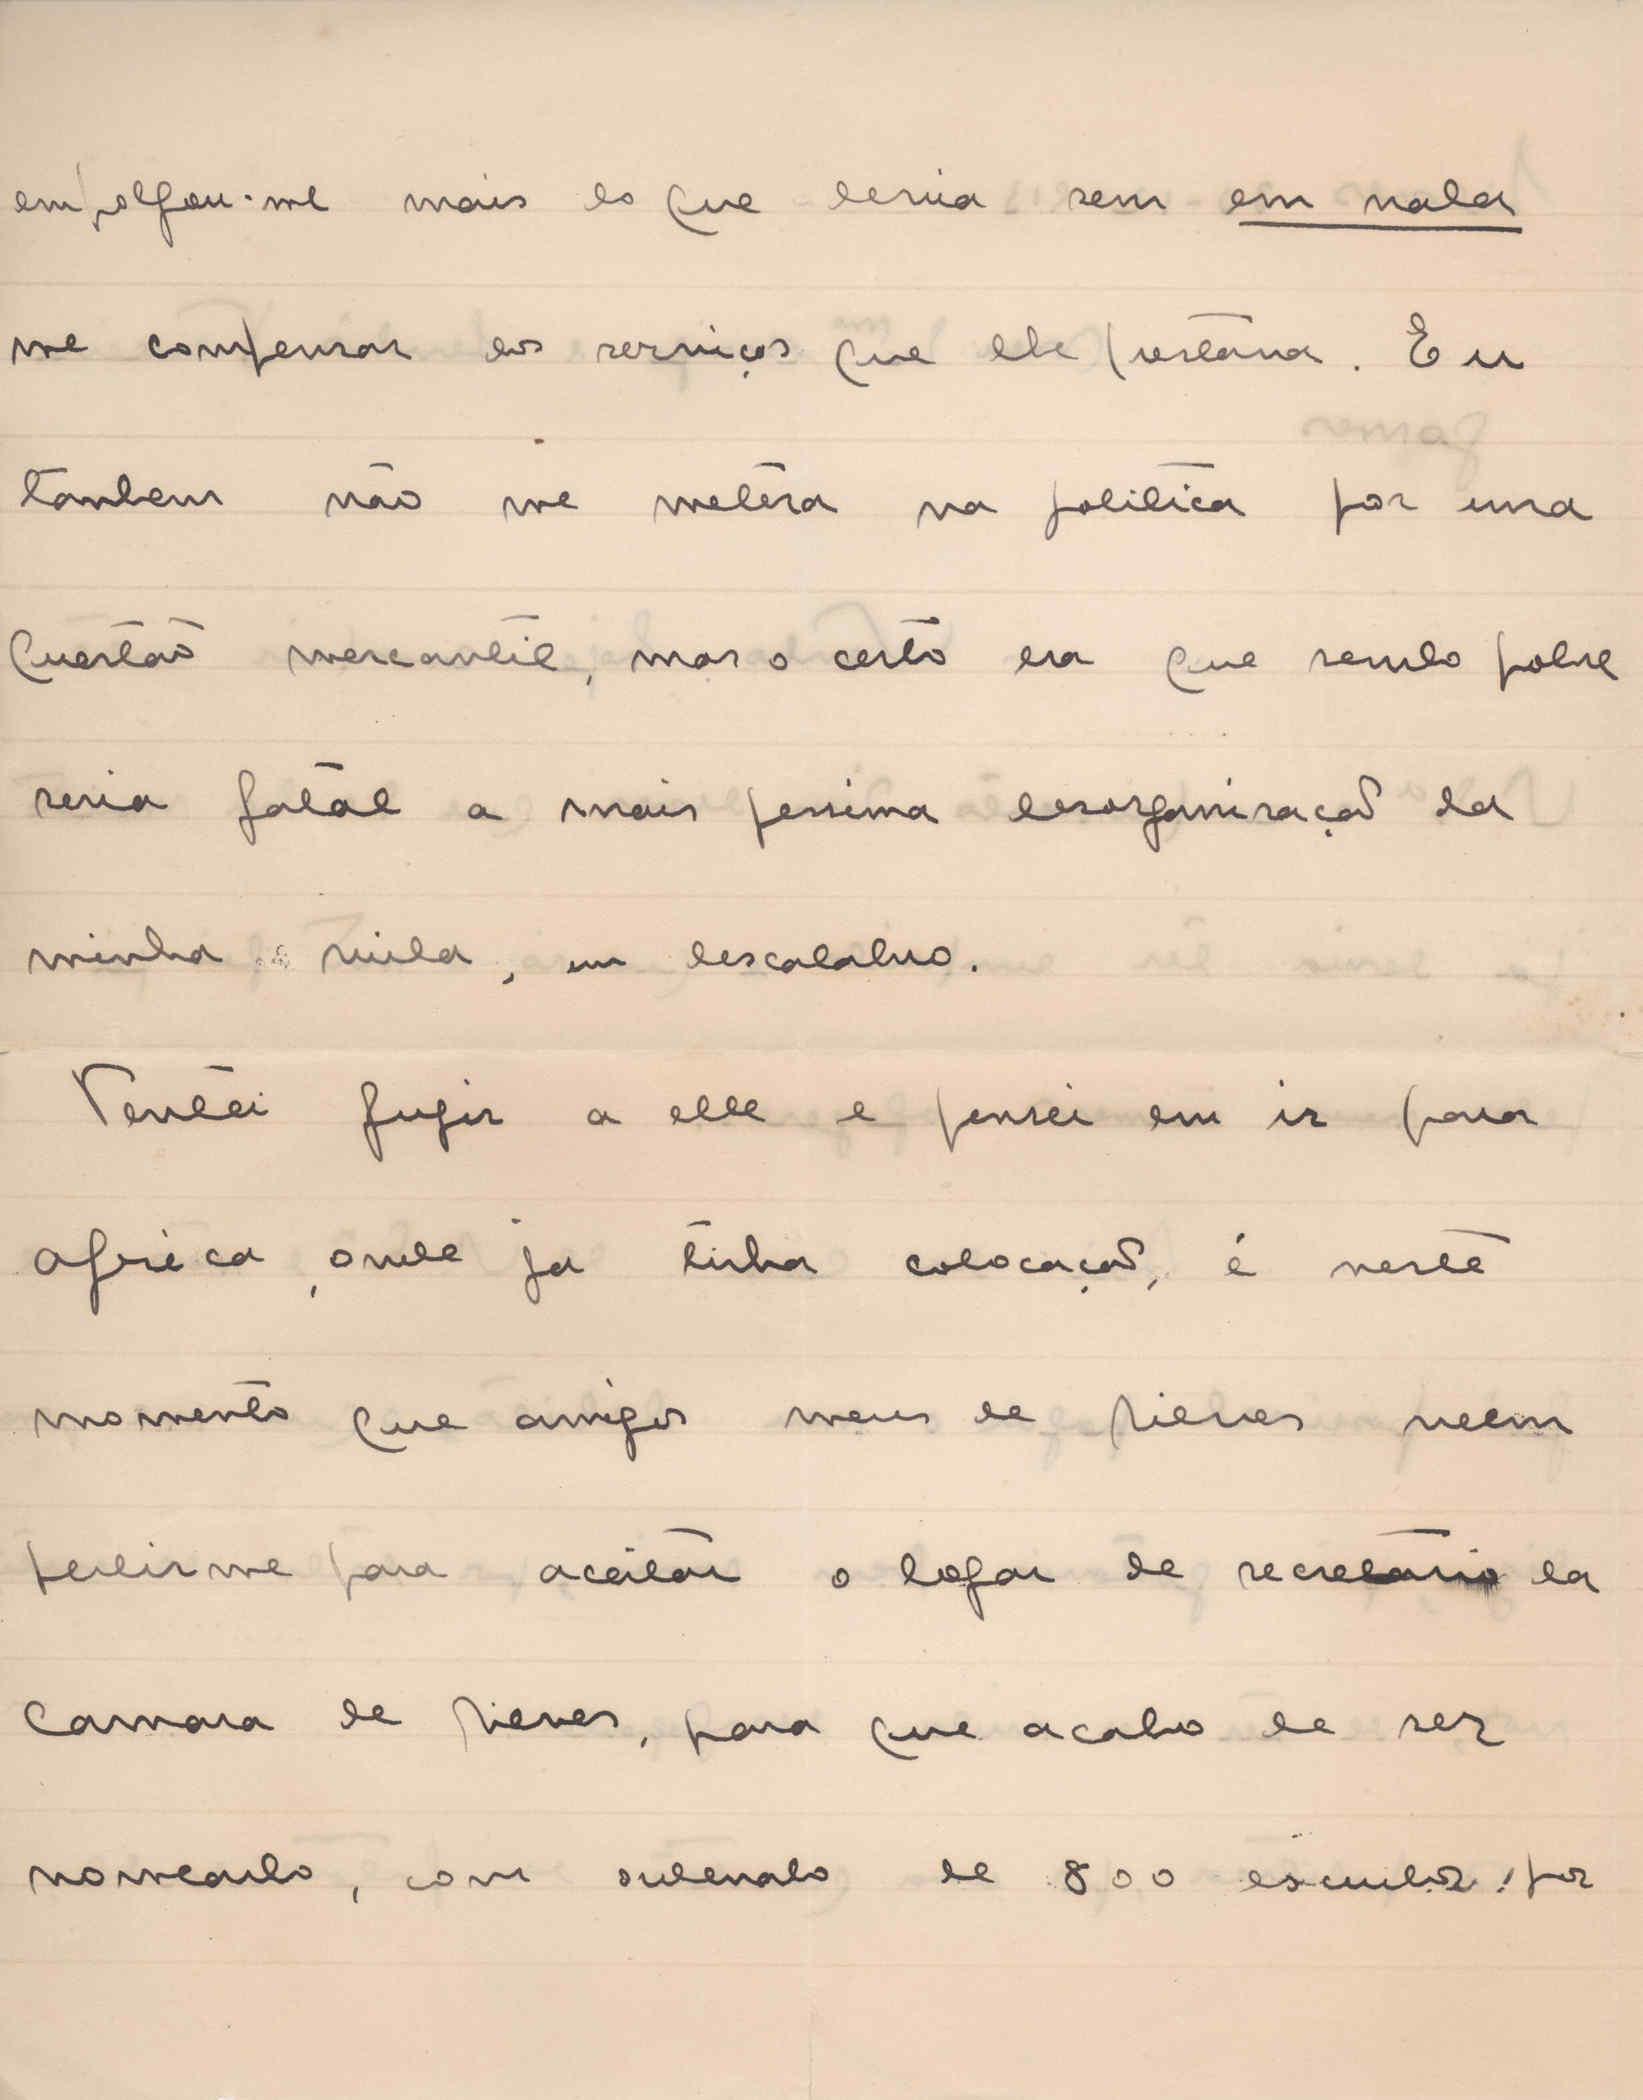 empolgou-me mais do que devia sem em nada
me compensar dos serviços que lhe prestava. Eu
tambem não me metêra na politica por uma
questão mercantil, mas o certo era que sendo pobre
seria fatal a mais pessima desorganisação da
minha vida, um descalabro.
Tentei fugir a elle e pensei em ir para
Africa, onde já tinha colocação, é neste
momento que amigos meus de Nieves veem
pedir-me para aceitar o logar de secretário da
Camara de Nieves, para que acabo de ser
nomeado, com ordenado de 800 escudos, por